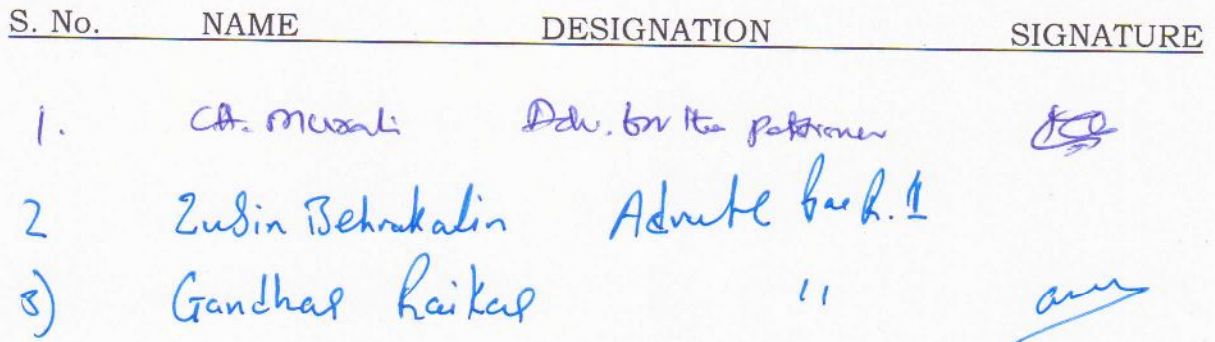 S. No. NAME DESIGNATION SIGNATURE
1. CH. Murali Adv. for the petitioner
2 Zubin Behrakalin Advocate for R. 1
3) Gandhar Raikar "